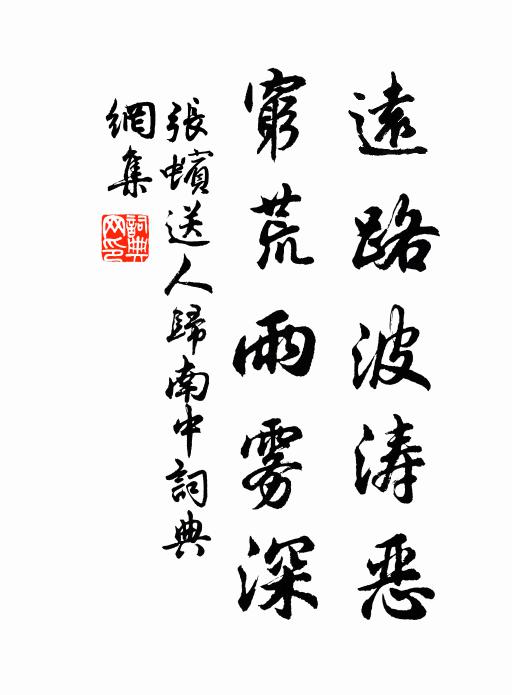 遠路波涛惡
窮荒雨雾深
張蠙送人歸南中詞典
網集
詞典网印